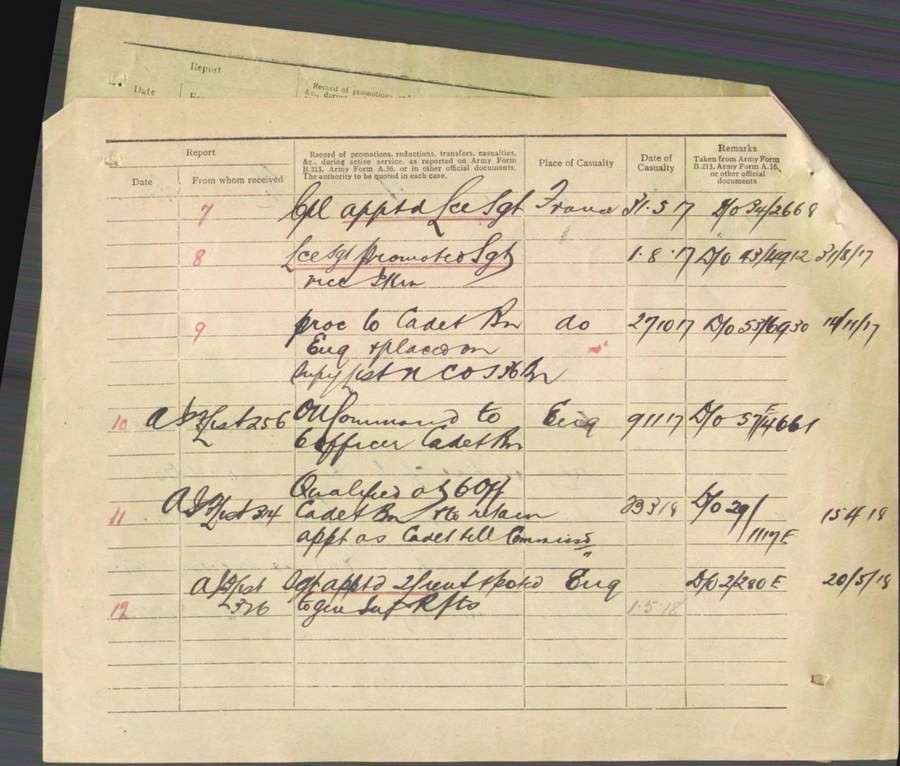 Report
Date
Record of promotions
&c., during
Report
Date
From whom received
Record of promotions, reductions, transfers, casualties, &c., during active service, as reported on Army Form B.213, Army Form A.36, or in other official documents. The authority to be quoted in each case.
Place of Casualty
Date of Casualty
Remarks
Taken from Army Form B.213, Army Form A.36, or other official documents
7 Cpl apptd Lce Sgt France 31.5.17 D/o 34/2668
8 Lce Sgt promoted Sgt 1.8.17 D/o 43/4912 31/8/17
vice
9 proc to Cadet Bn do 27 10 17 D/o 53/6930 14/11/17
Eng & placed on
Supy List n cos 36 Bn
10 List 256 On Command to Eng 9 11 17 D/o 57/4661 E
6 Officer Cadet Bn
Qualified at 6 Off
11 List 314 Cadet Bn & to retain 29 3 18 D/o 29/1117 E 15 4 18
appt as Cadet till Commissd
12 List 326 Sgt apptd 2/Lieut & postd Eng D/o 2/280 E 20/5/18
to gen Inf Rfts 1.5.18